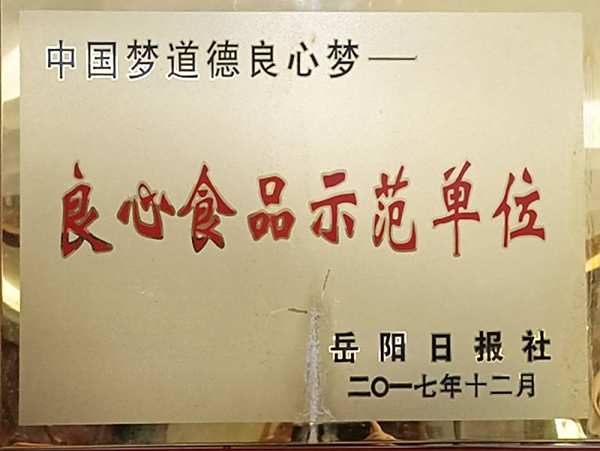 中国梦道德良心梦——
良心食品示范单位
岳阳日报社
二〇一七年十二月